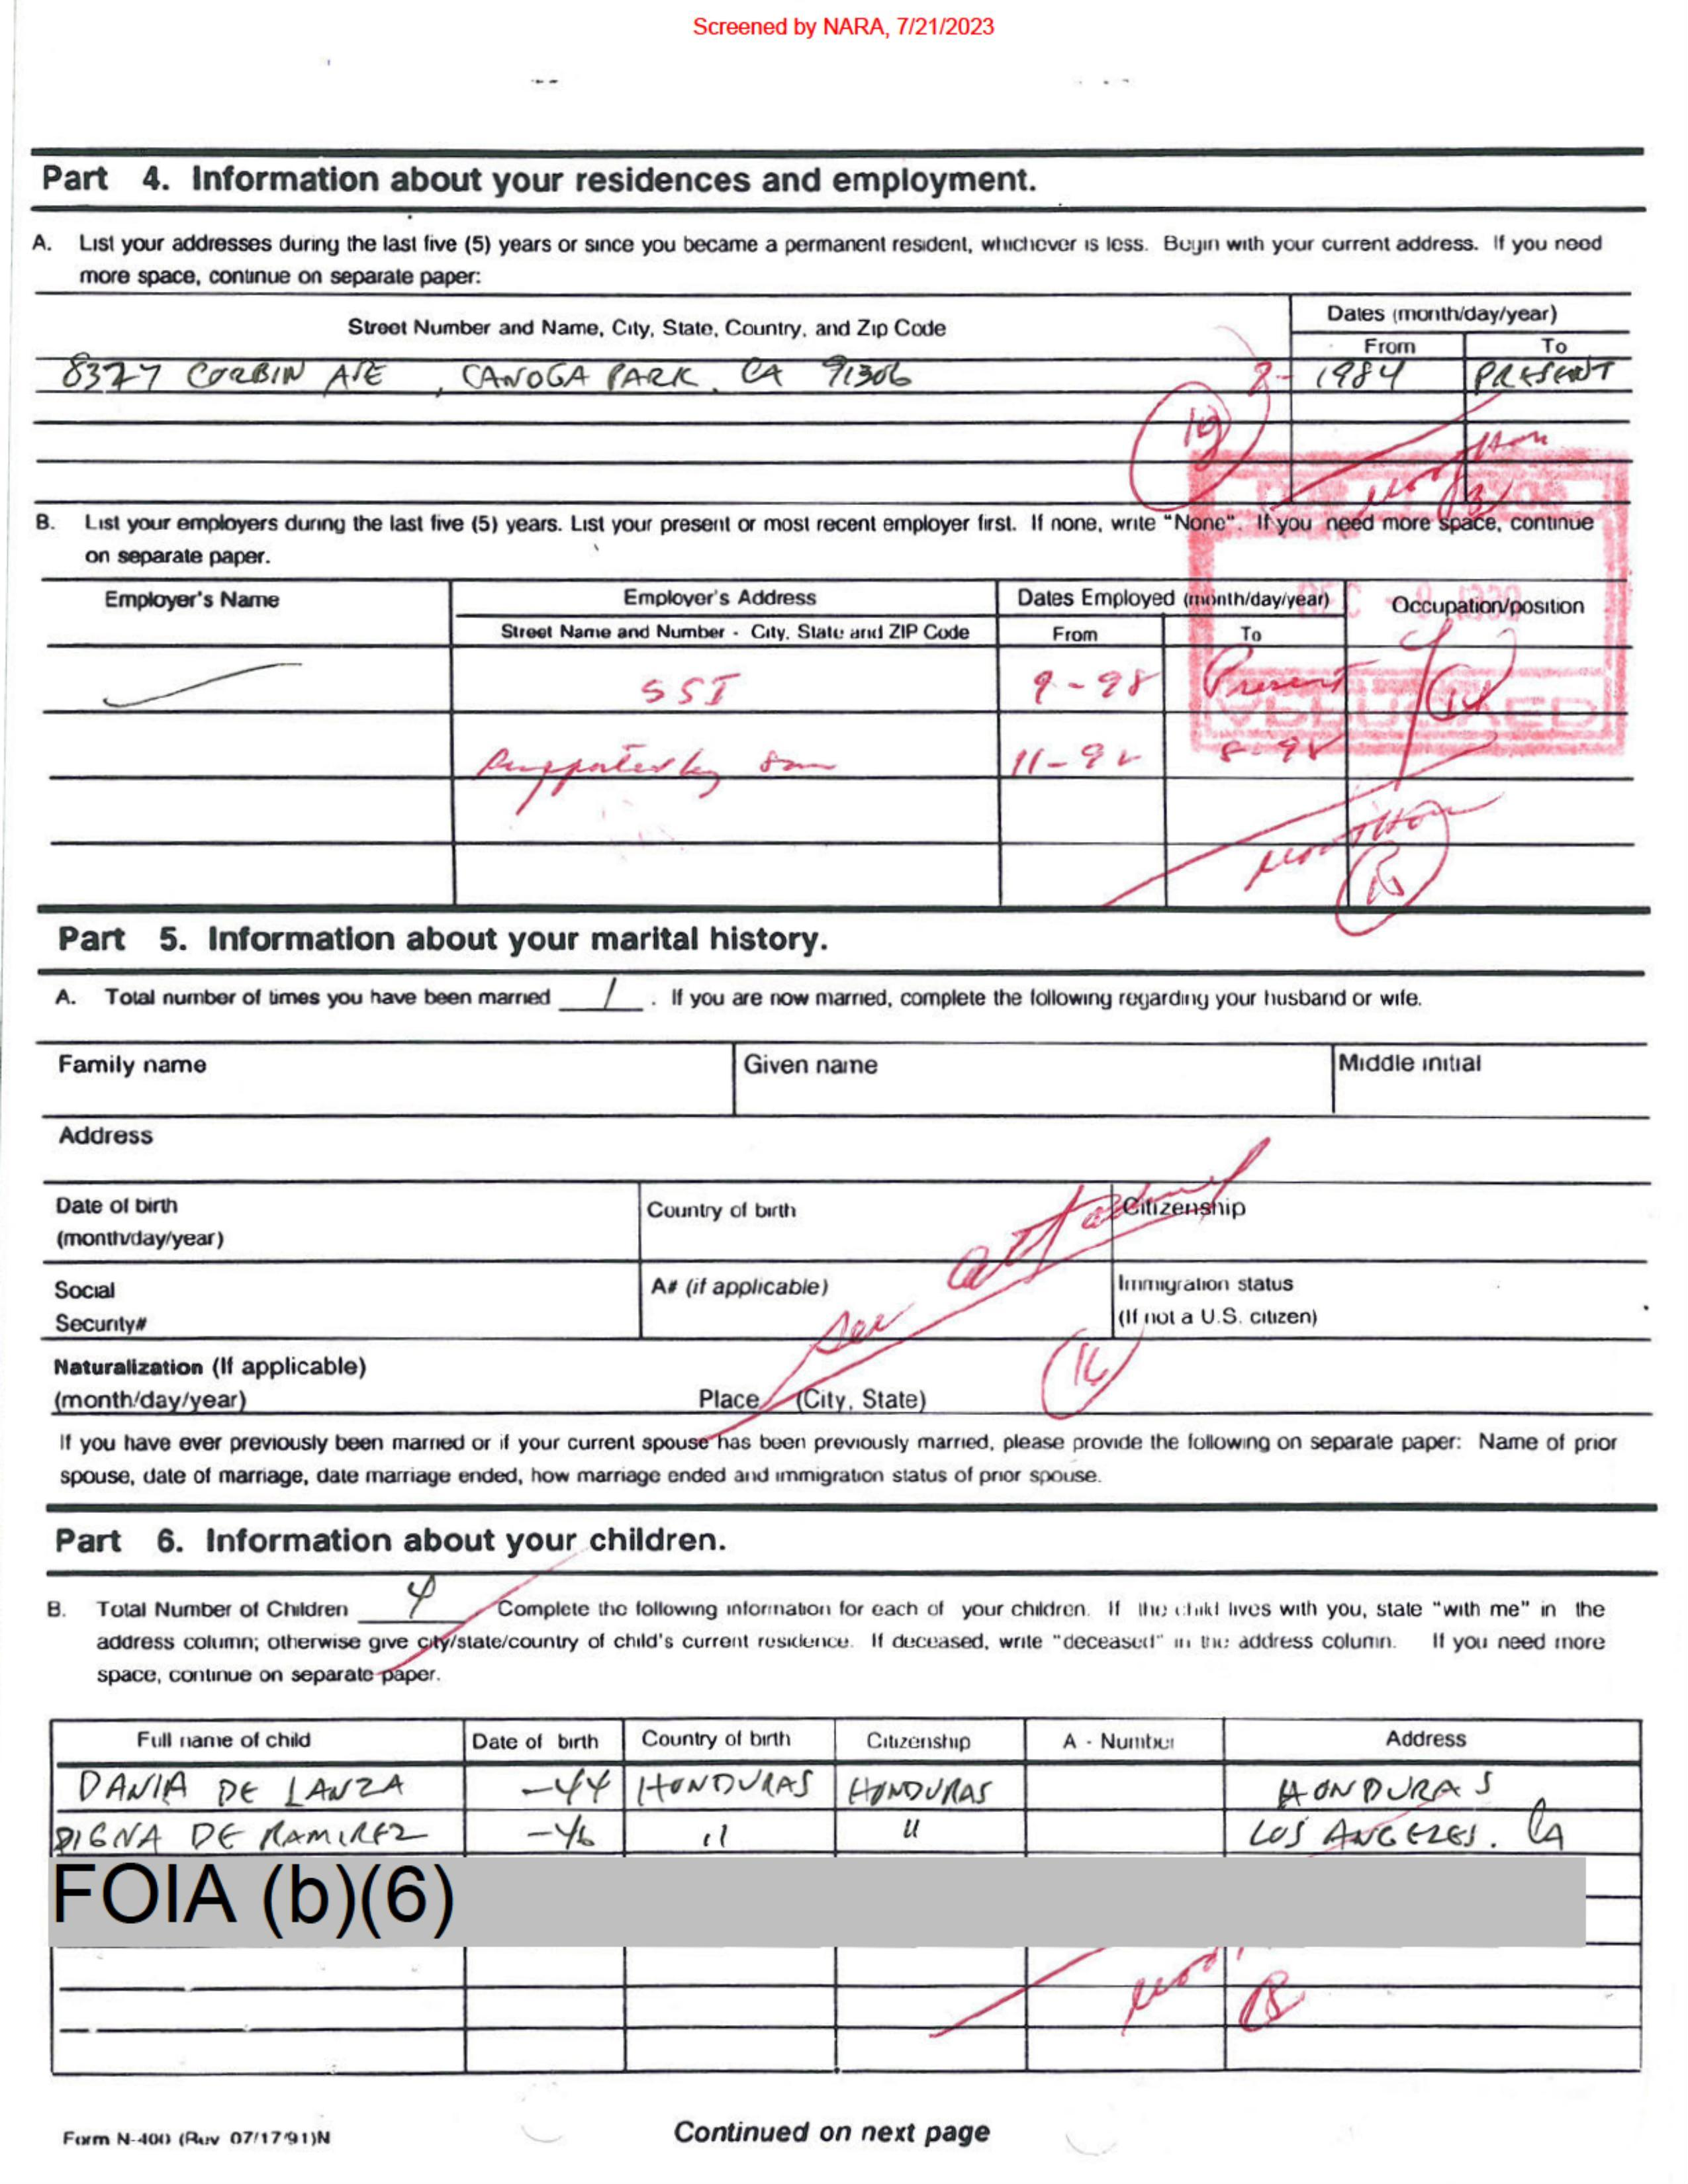 Screened by NARA, 7/21/2023
Part 4. Information about your residences and employment.
A. List your addresses during the last five (5) years or since you became a permanent resident, whichever is less. Begin with your current address. If you need
more space, continue on separate paper:
Street Number and Name, City, State, Country, and Zip Code
Dates (month/day/year)
From To
8377 CORBIN AVE, CANOGA PARK, CA 91306 2- 1984 PRESENT
B. List your employers during the last five (5) years. List your present or most recent employer first. If none, write "None". If you need more space, continue
on separate paper.
Employer's Name Employer's Address Dates Employed (month/day/year) Occupation/position
Street Name and Number - City, State and ZIP Code From To
SSI 9-98 Present
Supported by son 11-92 8-98
Part 5. Information about your marital history.
A. Total number of times you have been married 1 . If you are now married, complete the following regarding your husband or wife.
Family name Given name Middle initial
Address
Date of birth
(month/day/year)
Country of birth Citizenship
Social
Security#
A# (if applicable)
Immigration status
(If not a U.S. citizen)
see attached
Naturalization (If applicable)
(month/day/year) Place (City, State)
If you have ever previously been married or if your current spouse has been previously married, please provide the following on separate paper: Name of prior
spouse, date of marriage, date marriage ended, how marriage ended and immigration status of prior spouse.
Part 6. Information about your children.
B. Total Number of Children 4 Complete the following information for each of your children. If the child lives with you, state "with me" in the
address column; otherwise give city/state/country of child's current residence. If deceased, write "deceased" in the address column. If you need more
space, continue on separate paper.
Full name of child Date of birth Country of birth Citizenship A - Number Address
DANIA DE LANZA -44 HONDURAS HONDURAS HONDURAS
DIGNA DE RAMIREZ -46 " " LOS ANGELES. CA
FOIA (b)(6)
Form N-400 (Rev 07/17/91)N
Continued on next page